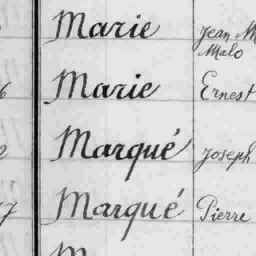 Marie Jean M
Malo
6 Marie Ernest
2 Marqué Joseph
7 Marqué Pierre